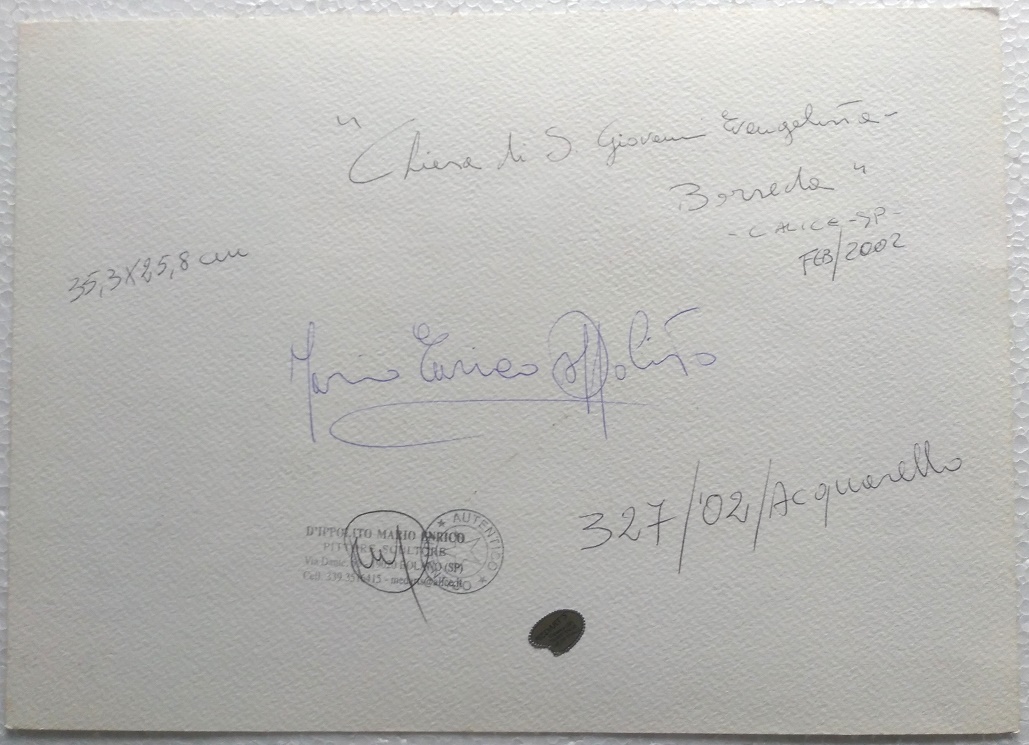 "Chiesa di S. Giovanni Evangelista-
Borseda"
- CALICE -SP-
FEB/2002
35,3X25,8 cm
Mario Enrico D'Ippolito
327/'02/Acquarello
D'IPPOLITO MARIO ENRICO
PITTORE SCULTORE
Via BOLANO (SP)
Cell. 339.
AUTENTICO